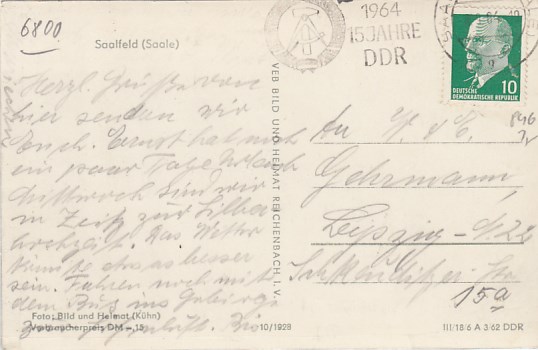 6800
Saalfeld (Saale)
1964
15 JAHRE
DDR
10
DEUTSCHE
DEMOKRATISCHE REPUBLIK
Herzl. Grüße von
hier senden wir
Euch. Ernst hat noch
ein paar Tage Urlaub
Mittwoch sind wir
in Zeitz zur Silber
hochzeit. Das Wetter
könnte etwas besser
sein. Fahren noch mit
dem Bus ins Gebirge
VEB BILD UND HEIMAT REICHENBACH I. V.
An
Gehrmann
Leipzig - N22
15a
Foto: Bild und Heimat (Kühn)
Verbraucherpreis DM -,15
10/1928
III/18/6 A 3/62 DDR